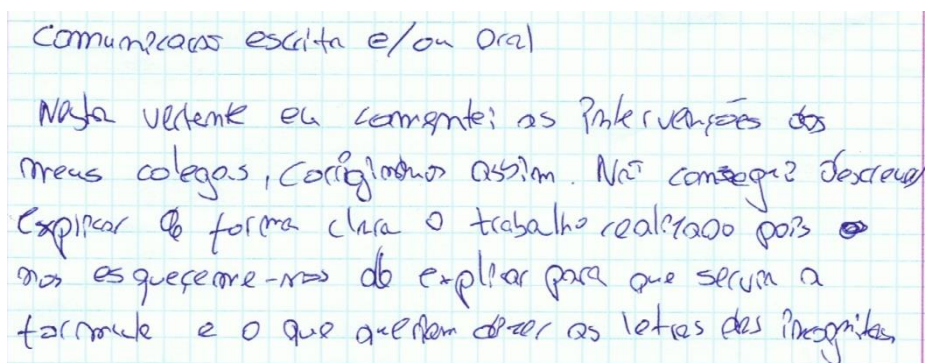 Comunicacos escrita e/ou Oral
Nesta vertente eu comentei as intervenções dos
meus colegas, assim. Não consegui descrever
explicar de forma clara o trabalho realizado pois
nos esqueceme-nos de explicar para que servia a
formula e o que queriam dizer as letras das incognitas